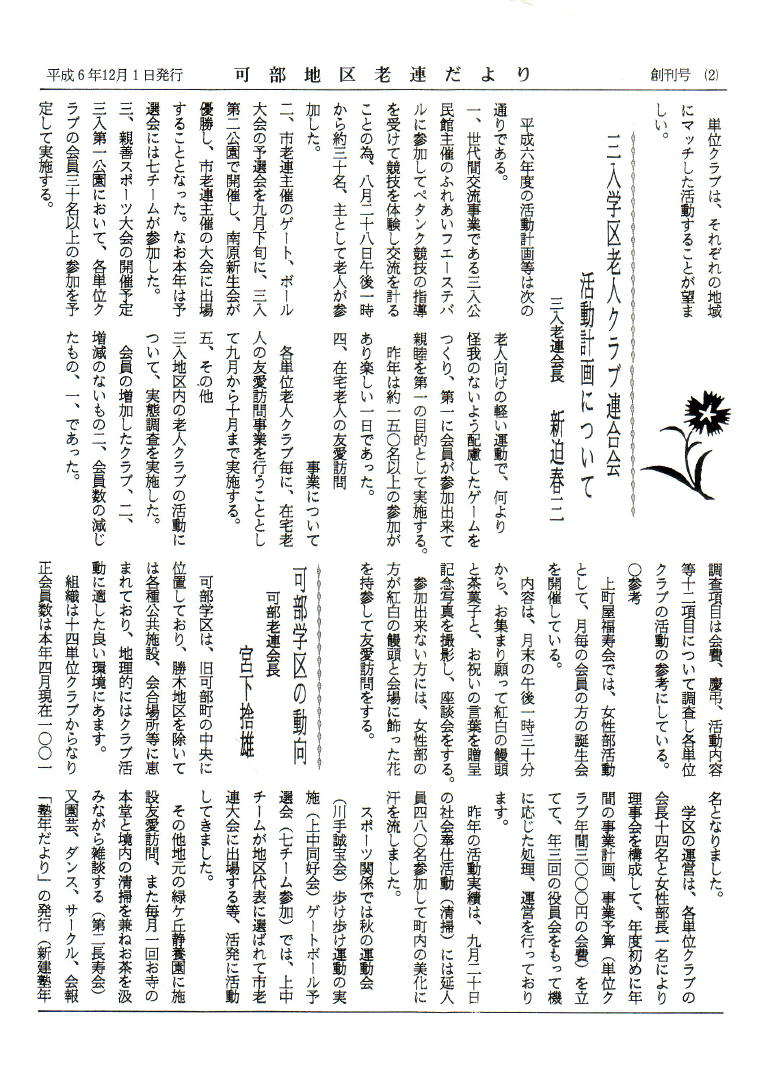 平成6年12月1日発行　可部地区老連だより　創刊号 (2)
　単位クラブは、それぞれの地域
にマッチした活動することが望ま
しい。
三入学区老人クラブ連合会
活動計画について
三入老連会長　新迫春三
　平成六年度の活動計画等は次の
通りである。
一、世代間交流事業である三入公
民館主催のふれあいフエーステバ
ルに参加してペタンク競技の指導
を受けて競技を体験し交流を計る
ことの為、八月二十八日午後一時
から約三十名、主として老人が参
加した。
二、市老連主催のゲート、ボール
大会の予選会を九月下旬に、三入
第二公園で開催し、南原新生会が
優勝し、市老連主催の大会に出場
することとなった。なお本年は予
選会には七チームが参加した。
三、親善スポーツ大会の開催予定
三入第一公園において、各単位ク
ラブの会員三十名以上の参加を予
定して実施する。
老人向けの軽い運動で、何より
怪我のないよう配慮したゲームを
つくり、第一に会員が参加出来て
親睦を第一の目的として実施する。
　昨年は約一五〇名以上の参加が
あり楽しい一日であった。
四、在宅老人の友愛訪問
事業について
　各単位老人クラブ毎に、在宅老
人の友愛訪問事業を行うこととし
て九月から十月まで実施する。
五、その他
三入地区内の老人クラブの活動に
ついて、実態調査を実施した。
　会員の増加したクラブ、二、
増減のないもの二、会員数の減じ
たもの、一、であった。
調査項目は会費、慶弔、活動内容
等十二項目について調査し各単位
クラブの活動の参考にしている。
〇参考
　上町屋福寿会では、女性部活動
として、月毎の会員の方の誕生会
を開催している。
　内容は、月末の午後一時三十分
から、お集まり願って紅白の饅頭
と茶菓子と、お祝いの言葉を贈呈
記念写真を撮影し、座談会をする。
　参加出来ない方には、女性部の
方が紅白の饅頭と会場に飾った花
を持参して友愛訪問をする。
可部学区の動向
可部老連会長
宮下捨雄
　可部学区は、旧可部町の中央に
位置しており、勝木地区を除いて
は各種公共施設、会合場所等に恵
まれており、地理的にはクラブ活
動に適した良い環境にあます。
　組織は十四単位クラブからなり
正会員数は本年四月現在一〇〇一
名となりました。
　学区の運営は、各単位クラブの
会長十四名と女性部長一名により
理事会を構成して、年度初めに年
間の事業計画、事業予算（単位ク
ラブ年間三〇〇〇円の会費）を立
てて、年三回の役員会をもって機
に応じた処理、運営を行っており
ます。
　昨年の活動実績は、九月二十日
の社会奉仕活動（清掃）には延人
員四八〇名参加して町内の美化に
汗を流しました。
　スポーツ関係では秋の運動会
（川手誠宝会）歩け歩け運動の実
施（上中同好会）ゲートボール予
選会（七チーム参加）では、上中
チームが地区代表に選ばれて市老
連大会に出場する等、活発に活動
してきました。
　その他地元の緑ケ丘静養園に施
設友愛訪問、また毎月一回お寺の
本堂と境内の清掃を兼ねお茶を汲
みながら雑談する（第二長寿会）
又園芸、ダンス、サークル、会報
「塾年だより」の発行（新建塾年